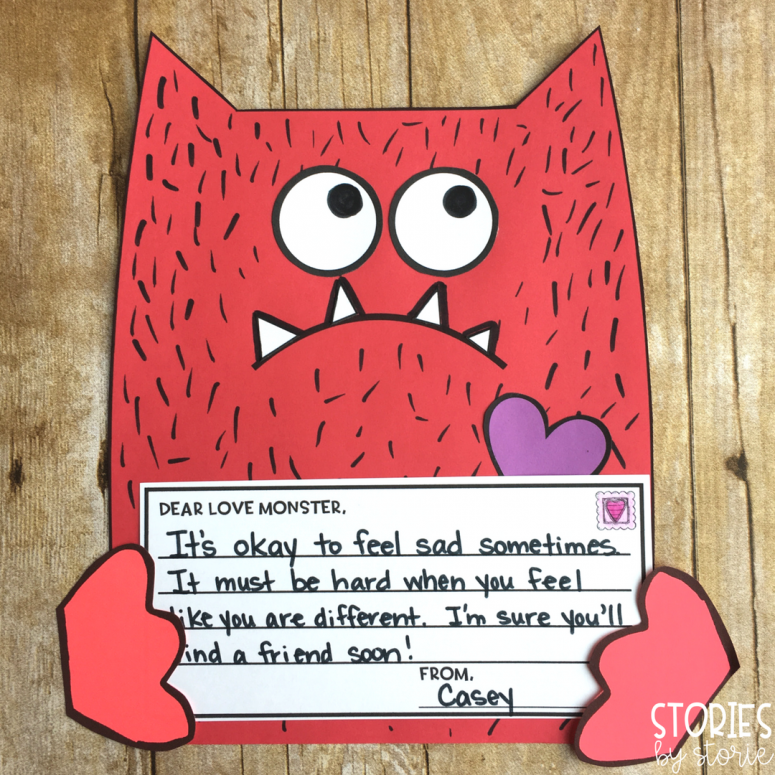 DEAR LOVE MONSTER,
It's okay to feel sad sometimes.
It must be hard when you feel
like you are different. I'm sure you'll
find a friend soon!
FROM,
Casey
STORIES
by storie